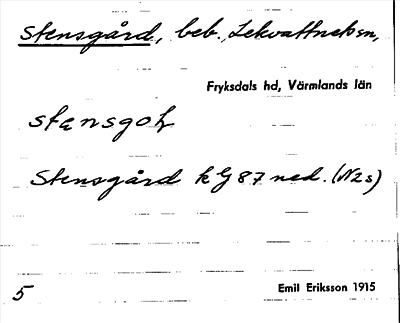 Stensgård, beb. Lekvattnets sn,
Fryksdals hd, Värmlands län
stɛnsgoɫ
Stensgård k G 87 ned. (N2s)
5
Emil Eriksson 1915